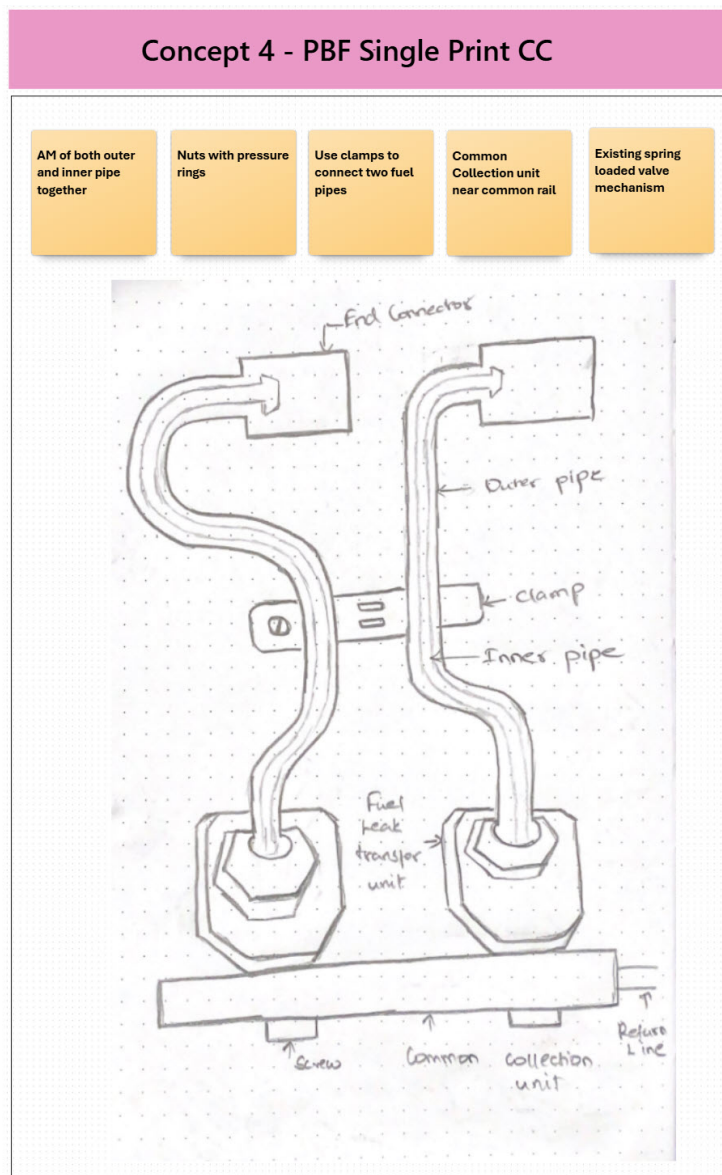 Concept 4 - PBF Single Print CC
AM of both outer
and inner pipe
together
Nuts with pressure
rings
Use clamps to
connect two fuel
pipes
Common
Collection unit
near common rail
Existing spring
loaded valve
mechanism
End Connector
Outer pipe
clamp
Inner pipe
Fuel
Leak
transfer
unit
Screw
Common
Collection
unit
Return
Line